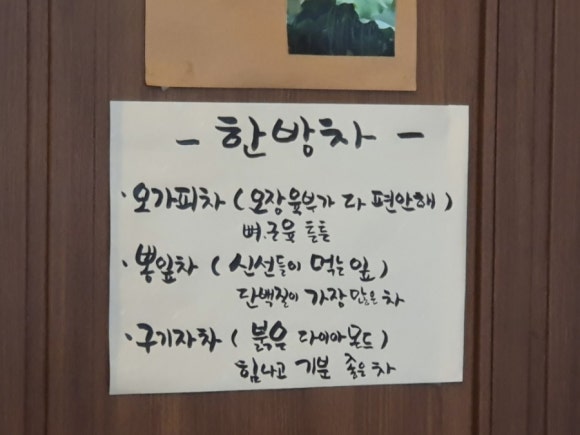 - 한방차 -
· 오가피차 ( 오장육부가 다 편안해 )
뼈.근육 튼튼
· 뽕잎차 ( 신선들이 먹는 잎 )
단백질이 가장 많은 차
· 구기자차 ( 붉은 다이아몬드 )
힘나고 기분 좋은 차